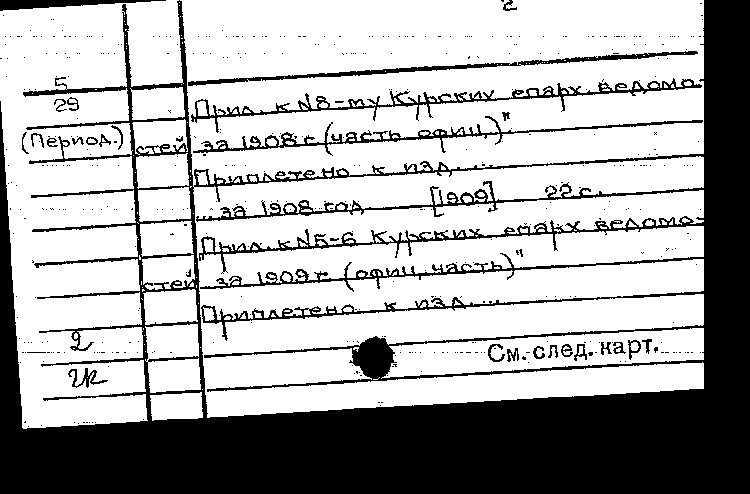 2
5
29
„Прил. к №8-му Курских епарх. ведомо-
(Период.) стей за 1908 г. (часть офиц.)".
Приплетено к изд. ...
... за 1908 год [1909] 22 с.
„Прил. к №5-6 Курских епарх ведомо-
стей за 1909 г. (офиц. часть)"
Приплетено к изд. ...
2
2к
См. след. карт.